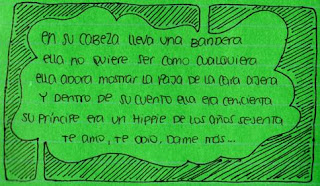 en su cabeza lleva una bandera
ella no quiere ser como cualquiera
ella adora mostrar la paja de la cara ajena
y dentro de su cuento ella era cenicienta
su príncipe era un hippie de los años sesenta
te amo, te odio, dame más...